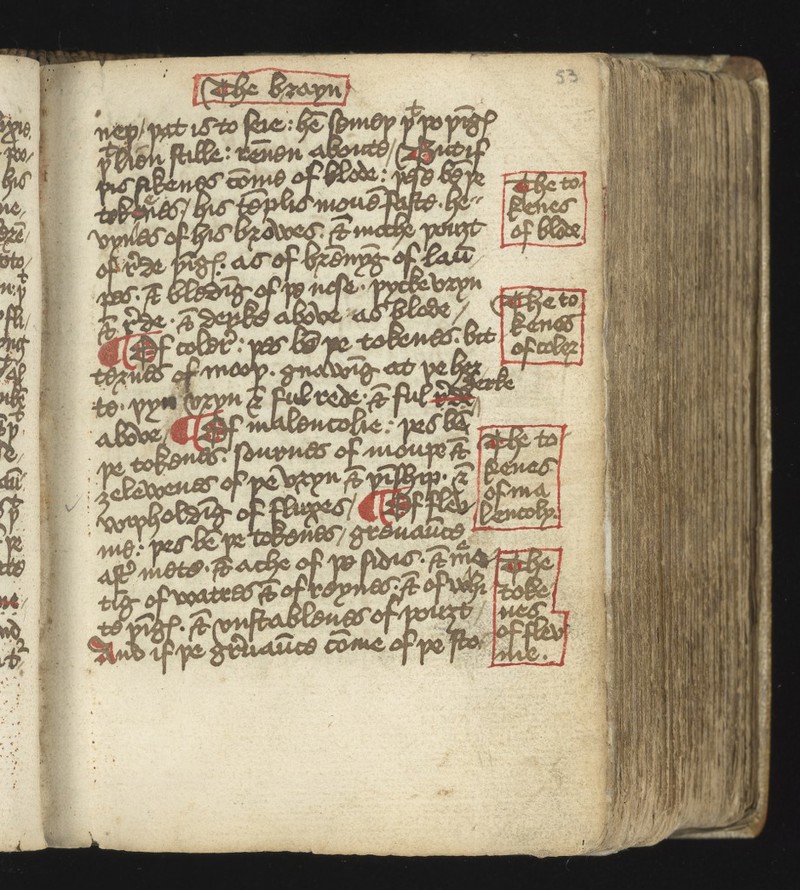 53
The brayn
neþ / þat is to seie : hē semeþ þt þo þīgꝭ
þt lien stille : rēnen aboute / But if
þis sikenes cōme of blode : þes bē þe
tokenes / his tēplis moue faste . he-
vynes of his browes . & moche þouȝt
of rede þīgꝭ . as of brēnyg of lāu
pes . & bledīg of þe nese . þycke vryn
& rede . & derke aboue as blode /
¶ Of coler : þes bē þe tokenes . bit
ternes of mouþ . gnawīg at þe her
te . þyn vryn & ful rede . & ful derke
aboue / ¶ Of malencolie : þes bē
þe tokenes . sournes of mouþe &
ȝelewenes of þe vryn & þīship . &
wiþholdīg of fluxes / ¶ Of flev
me : þes be þe tokenes / greuaūce
aftr mete . & ache of þe sidis . & me
tīg of watres & of reynes . & of whi
te þīgꝭ . & vnstablenes of þouȝt
And if þe greuaūce cōme of þe sto
The to
kenes
of blode
The to
kenes
of coler
The to-
kenes
of ma
lencoly
The
toke
nes
of flev
me .